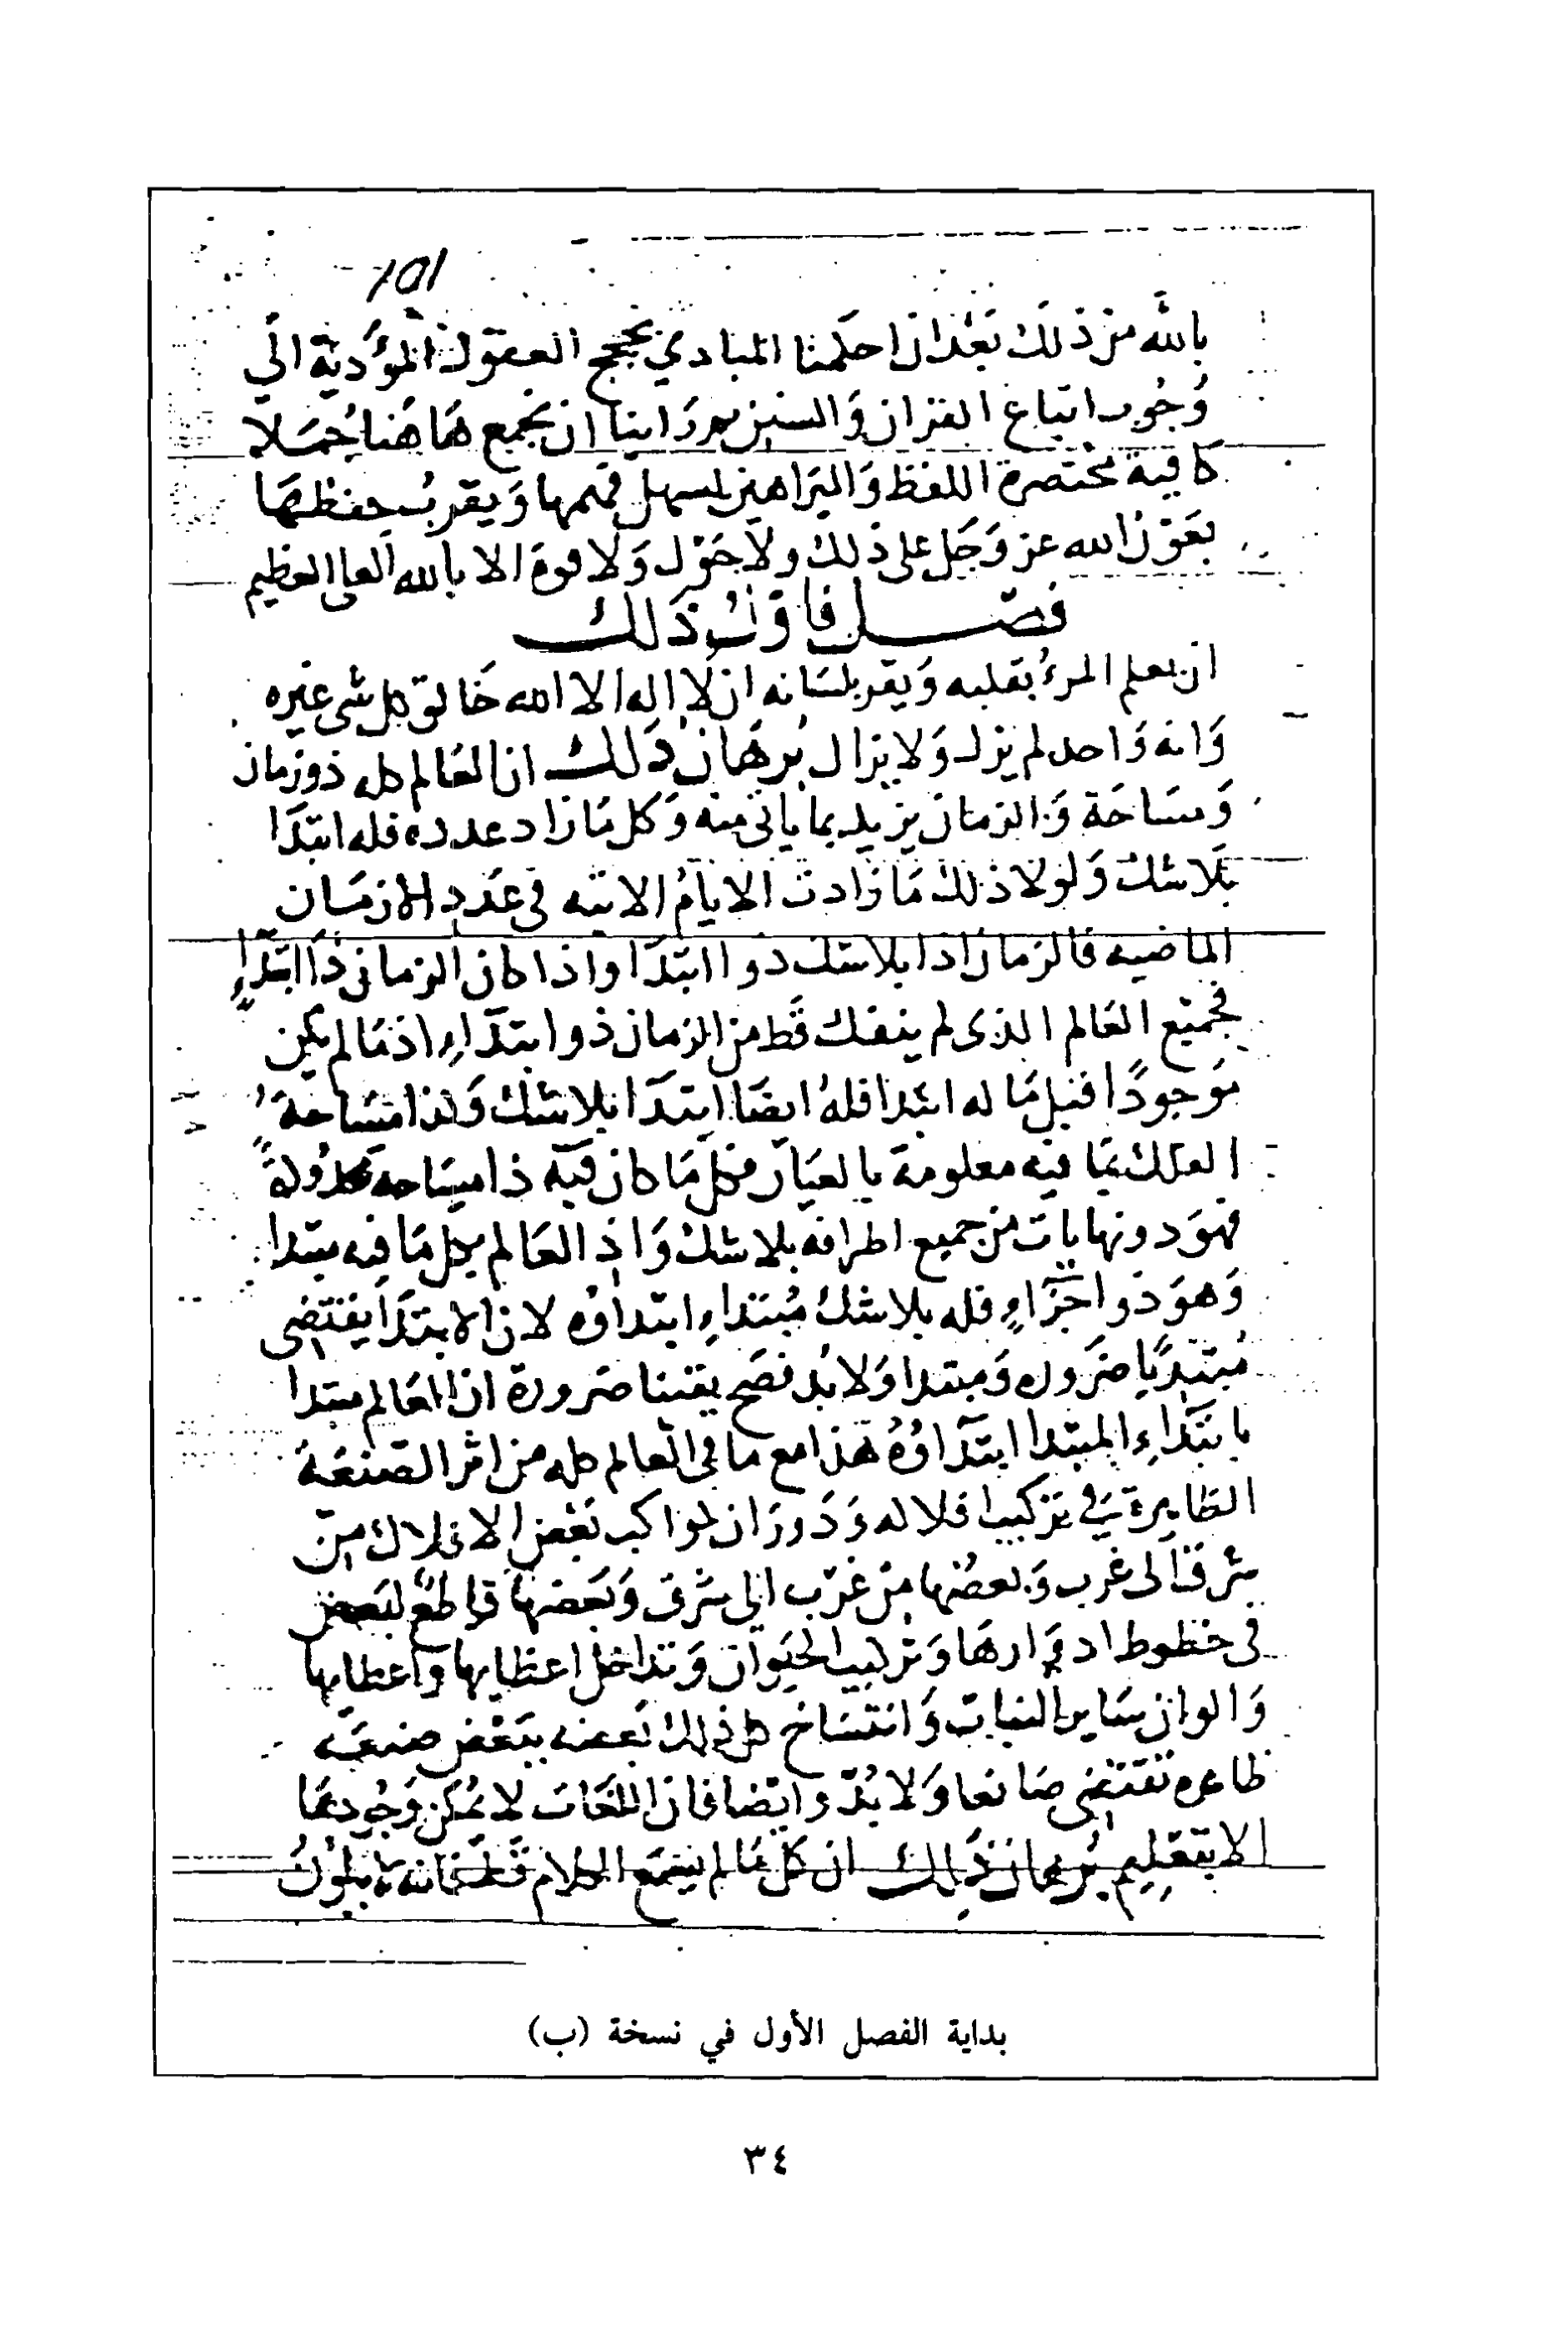 ١٥١
بالله من ذلك بعد ان احكمنا المبادي بحجج العقول المؤدية الى
وجوب اتباع القران والسنن راينا ان نجمع هاهنا جملا
كافية مختصرة اللفظ والبراهين ليسهل فهمها ويقرب حفظها
بعون الله عز وجل على ذلك ولا حول ولا قوة الا بالله العلي العظيم
فصل فاول ذلك
ان يعلم المرء بقلبه ويقر بلسانه ان لا اله الا الله خالق كل شي غيره
وانه واحد لم يزل ولا يزال برهان ذلك ان العالم كله ذو زمان
ومساحة والزمان يزيد بما ياتي منه وكل ما زاد عدده فله ابتدا
بلا شك ولولا ذلك ما زادت الايام الاتيه في عدد الازمان
الماضيه فالزمان اذا بلا شك ذو ابتدا واذا كان الزمان ذا ابتداء
فجميع العالم الذي لم ينفك قط من الزمان ذو ابتداء اذ ما لم يكن
موجودًا قبل ما له ابتدا فله ايضا ابتدا بلا شك وكذا مساحة
الفلك بما فيه معلومة بالعيان فكل ما كان فيه ذا مساحة محدودة
فهو ذو نهايات من جميع اطرافه بلا شك واذ العالم بكل ما فيه مبتدا
وهو ذو اجزاء فله بلا شك مبتداء ابتداؤه لان الابتدا يقتضي
مبتديًا ضروره ومبتدا ولا بد فصح يقينا ضرورة ان العالم مبتدا
بابتداء المبتدا ابتداؤه هذا مع ما في العالم كله من اثر الصنعة
الظاهرة في تركيب افلاله ودوران لواكب بعض الافلاك من
شرق الى غرب وبعضها من غرب الى شرق وبعضها قاطع لبعض
في خطوط ادوارها وتركيب الحيوان وتداخل اعظايها واعطايها
والوان ساير النبات وانتساخ كل ذلك بعضه ببعض صنعة
ظاهره تقتضي صانعا ولا بد وايضا فان اللغات لا يمكن وجودها
الا بتعليم برهان ذلك ان كل ما لم يسمع الكلام قط فانه لا يكون
بداية الفصل الأول في نسخة (ب)
٣٤